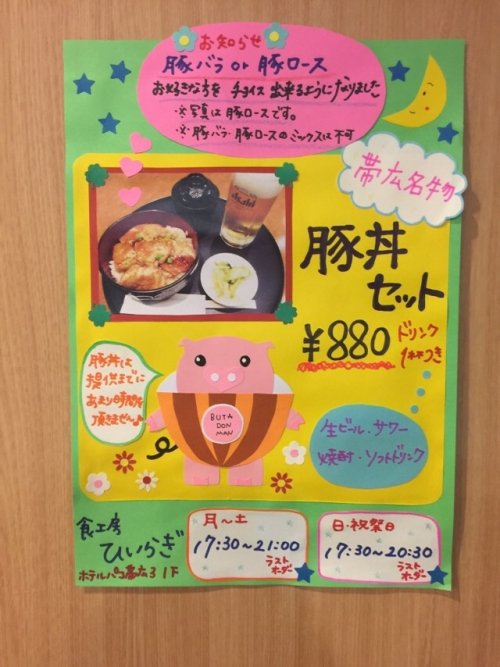 お知らせ
豚バラ or 豚ロース
お好きな方を チョイス 出来るようになりました
※写真は豚ロースです。
※豚バラ・豚ロースのミックスは不可
帯広名物
Asahi
豚丼
セット
¥880
ドリンク
1杯つき
豚丼は
提供までに
あまり時間を
頂きません♪
BUTA
DON
MAN
生ビール・サワー
焼酎・ソフトドリンク
食工房
ひいらぎ
ホテルパコ帯広3 1F
月〜土
17:30〜21:00
ラスト
オーダー
日・祝祭日
17:30〜20:30
ラスト
オーダー